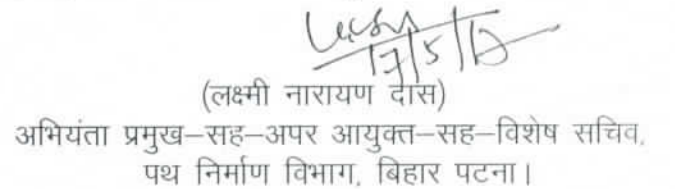 17/5/17
(लक्ष्मी नारायण दास)
अभियंता प्रमुख–सह–अपर आयुक्त–सह–विशेष सचिव,
पथ निर्माण विभाग, बिहार पटना।